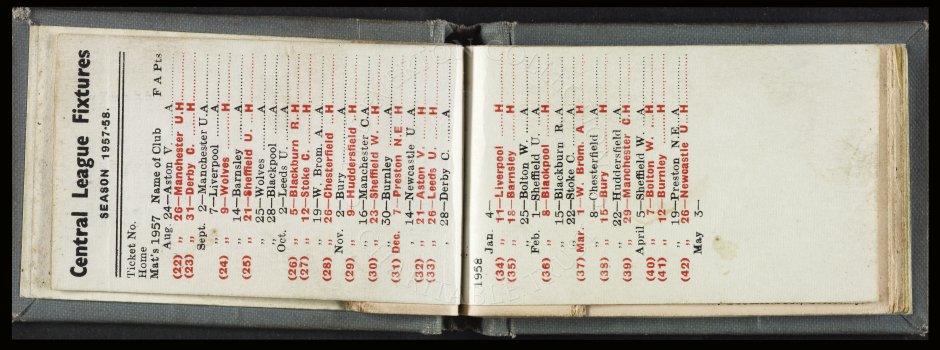 Central League Fixtures
SEASON 1957-58.
Ticket No.
Home
Mat's 1957 Name of Club F A Pts
Aug. 24—Aston V. A
(22) „ 26—Manchester U. H
(23) „ 31 Derby C. H
Sept. 2—Manchester U. A
„ 7—Liverpool A
(24) „ 9—Wolves H
„ 14—Barnsley A
(25) „ 21—Sheffield U. H
„ 25—Wolves A
„ 28—Blackpool A
Oct. 2—Leeds U. A
(26) „ 5—Blackburn R. H
(27) „ 12—Stoke C. H
„ 19—W. Brom. A. A
(28) „ 26—Chesterfield H
Nov. 2—Bury A
(29) „ 9—Huddersfield H
„ 16—Manchester C. A
(30) „ 23—Sheffield W. H
„ 30—Burnley A
(31) Dec. 7—Preston N.E. H
„ 14—Newcastle U. A
(32) „ 21—Aston V. H
(33) „ 26—Leeds U. H
„ 28—Derby C. A
1958
Jan. 4—
(34) „ 11—Liverpool H
(35) „ 18—Barnsley H
„ 25—Bolton W. A
Feb. 1—Sheffield U. A
(36) „ 8—Blackpool H
„ 15—Blackburn R. A
„ 22—Stoke C. A
(37) Mar. 1—W. Brom. A. H
„ 8—Chesterfield A
(38) „ 15—Bury H
„ 22—Huddersfield A
(39) „ 29—Manchester C. H
April 5—Sheffield W. A
(40) „ 7—Bolton W. H
(41) „ 12—Burnley H
„ 19—Preston N.E. A
(42) „ 26—Newcastle U. H
May 3—